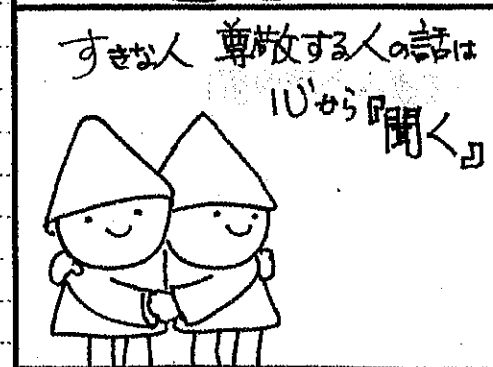 すきな人 尊敬する人の話は
心から『聞く』